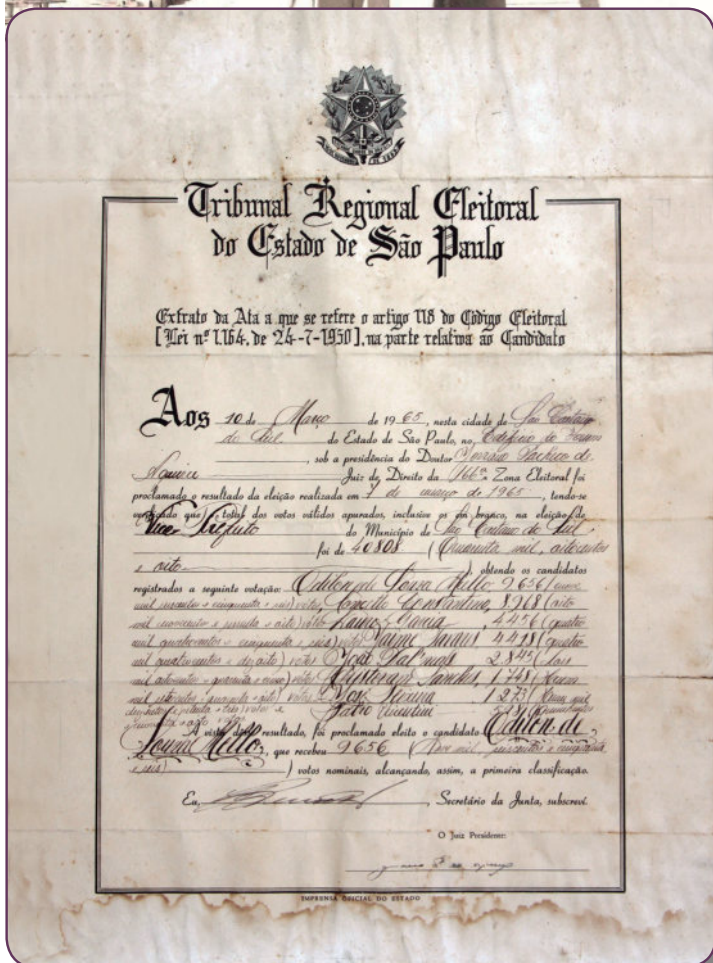 Tribunal Regional Eleitoral
do Estado de São Paulo
Extrato da Ata a que se refere o artigo 118 do Código Eleitoral
[Lei nº 1.164, de 24-7-1950], na parte relativa ao Candidato
Aos 10 de Março de 1965, nesta cidade de São Caetano
do Sul do Estado de São Paulo, no Edifício do Forum
, sob a presidência do Doutor Pacheco de
Juiz de Direito da 166ª Zona Eleitoral foi
proclamado o resultado da eleição realizada em 7 de março de 1965, tendo-se
verificado que o total dos votos válidos apurados, inclusive os em branco, na eleição de
Vice-Prefeito do Município de São Caetano do Sul
foi de 40808 (Quarenta mil, oitocentos
e oito), obtendo os candidatos
registrados a seguinte votação: Odilon de Souza Mello, 9656 (nove
mil seiscentos e cinquenta e seis) votos, Constantino, 8968 (oito
mil novecentos e sessenta e oito) votos Lauro Garcia 4456 (quatro
mil quatrocentos e cinquenta e seis) votos Jaime 4418 (quatro
mil quatrocentos e dezoito) votos João 2849 (dois
mil oitocentos e quarenta e nove) votos Sanches, 1748 (hum
mil setecentos e quarenta e oito) votos José 1273 (hum mil
duzentos e setenta e tres) votos e
e oito votos
À vista do resultado, foi proclamado eleito o candidato Odilon de
Souza Mello, que recebeu 9656 (Nove mil, seiscentos e cinquenta
e seis) votos nominais, alcançando, assim, a primeira classificação.
Eu, , Secretário da Junta, subscreví.
O Juiz Presidente:
IMPRENSA OFICIAL DO ESTADO